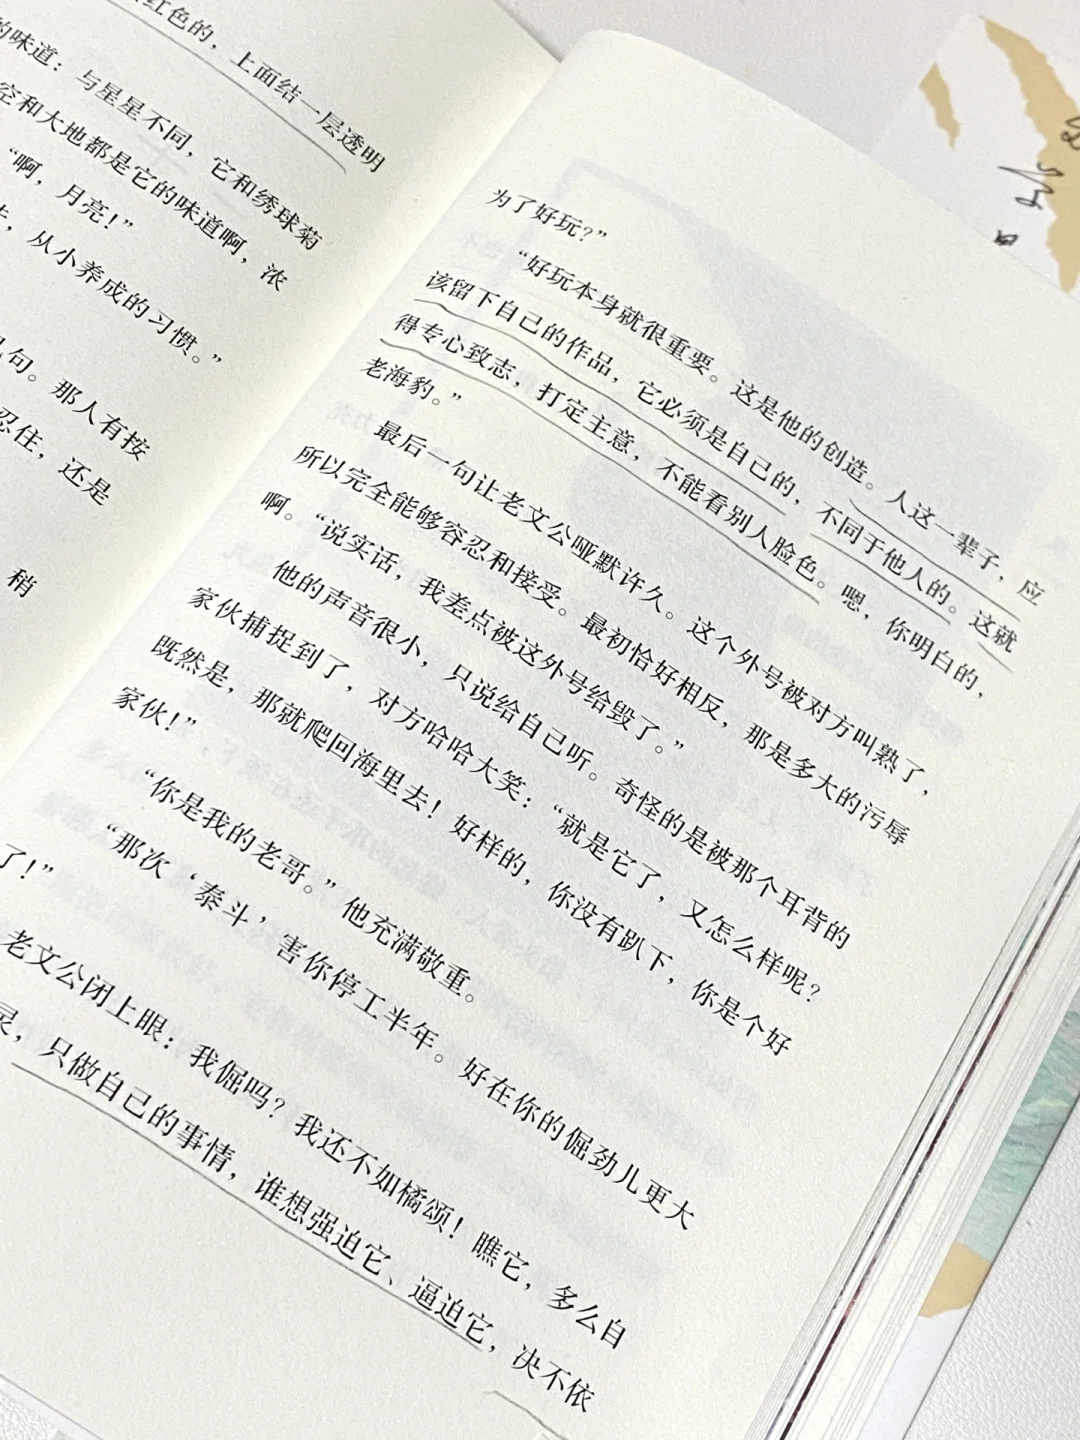 红色的，上面结一层透明
的味道：与星星不同，它和绣球菊
空和大地都是它的味道啊，浓
“啊，月亮！”
，从小养成的习惯。”
句。那人有按
忍住，还是
稍
为了好玩？”
“好玩本身就很重要。这是他的创造。人这一辈子，应
该留下自己的作品，它必须是自己的，不同于他人的。这就
得专心致志，打定主意，不能看别人脸色。嗯，你明白的，
老海豹。”
最后一句让老文公哑默许久。这个外号被对方叫熟了，
所以完全能够容忍和接受。最初恰好相反，那是多大的污辱
啊。“说实话，我差点被这外号给毁了。”
他的声音很小，只说给自己听。奇怪的是被那个耳背的
家伙捕捉到了，对方哈哈大笑：“就是它了，又怎么样呢？
既然是，那就爬回海里去！好样的，你没有趴下，你是个好
家伙！”
“你是我的老哥。”他充满敬重。
“那次‘泰斗’害你停工半年。好在你的倔劲儿更大
了！”
老文公闭上眼：我倔吗？我还不如橘颂！瞧它，多么自
灵，只做自己的事情，谁想强迫它、逼迫它，决不依